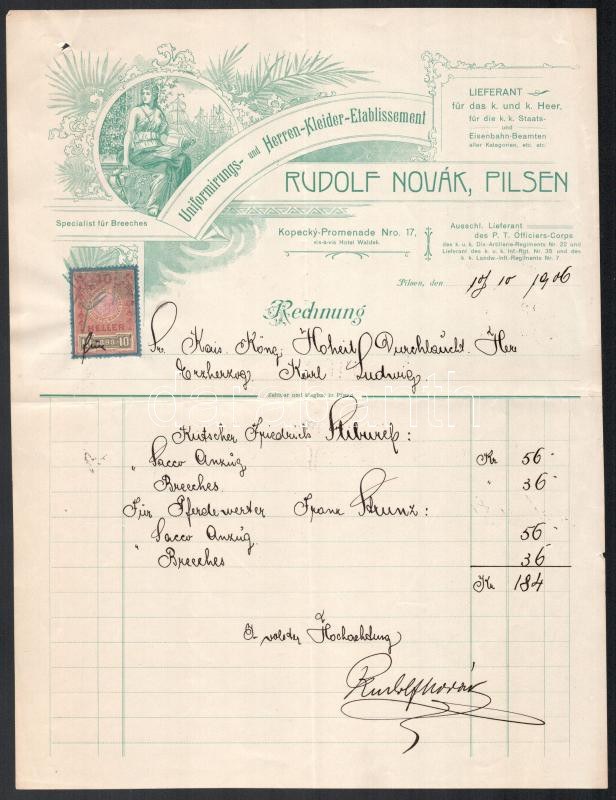 Uniformirungs- und Herren-Kleider-Etablissement
LIEFERANT
für das k. und k. Heer,
für die k. k. Staats-
und
Eisenbahn-Beamten
aller Kategorien, etc. etc.
RUDOLF NOVÁK, PILSEN
Specialist für Breeches
Kopecký-Promenade Nro. 17,
vis-à-vis Hotel Waldek.
Ausschl. Lieferant
des P. T. Officiers-Corps
des k. u. k. Div.-Artillerie-Regiments Nr. 22 und
Lieferant des k. u. k. Inf.-Rgt. Nr. 35 und des
k. k. Landw.-Inft.-Regiments Nr. 7
Pilsen, den 10/10 1906
10
HELLER
10
Rechnung
Sr. Kais. König. Hoheit Durchlaucht Herr
Erzherzog Karl Ludwig
Zahlbar und klagbar in Pilsen
Kutscher Friedrich :
" Sacco Anzug Kr 56
" Breeches " 36
Für Pferdewerter Franz Strunz :
" Sacco Anzug 56
" Breeches 36
Kr 184
Hochachtung
Rudolf Novák